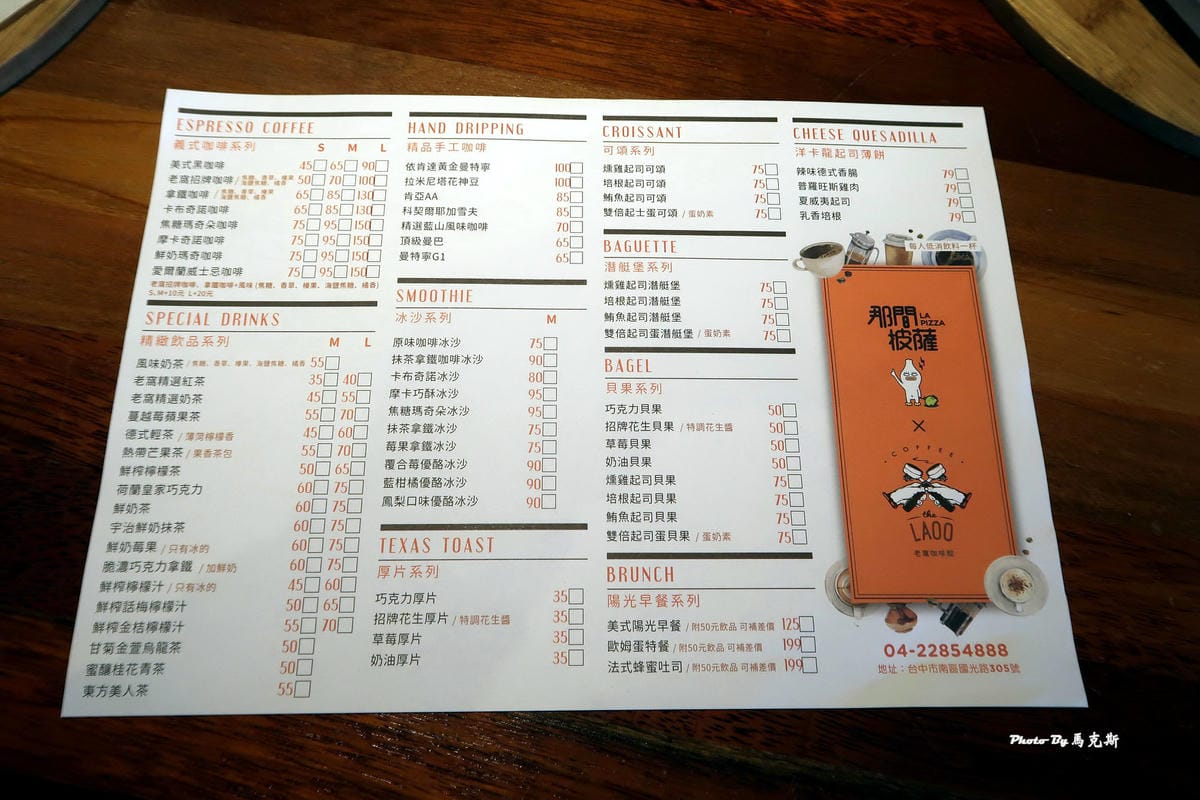 ESPRESSO COFFEE
義式咖啡系列 S M L
美式黑咖啡 45 65 90
老窩招牌咖啡 / 焦糖、香草、榛果 海鹽焦糖、橘香 50 70 100
拿鐵咖啡 / 焦糖、香草、榛果 海鹽焦糖、橘香 65 85 130
卡布奇諾咖啡 65 85 130
焦糖瑪奇朵咖啡 75 95 150
摩卡奇諾咖啡 75 95 150
鮮奶瑪奇咖啡 75 95 150
愛爾蘭威士忌咖啡 75 95 150
老窩招牌咖啡、拿鐵咖啡+風味 (焦糖、香草、榛果、海鹽焦糖、橘香)
S、M+10元 L+20元
SPECIAL DRINKS
精緻飲品系列 M L
風味奶茶 / 焦糖、香草、榛果、海鹽焦糖、橘香 55
老窩精選紅茶 35 40
老窩精選奶茶 45 55
蔓越莓蘋果茶 55 70
德式輕茶 / 薄荷檸檬香 45 60
熱帶芒果茶 / 果香茶包 55 70
鮮榨檸檬茶 50 65
荷蘭皇家巧克力 60 75
鮮奶茶 60 75
宇治鮮奶抹茶 60 75
鮮奶莓果 / 只有冰的 60 75
脆濃巧克力拿鐵 / 加鮮奶 60 75
鮮榨檸檬汁 / 只有冰的 45 60
鮮榨話梅檸檬汁 50 65
鮮榨金桔檸檬汁 55 70
甘菊金萱烏龍茶 50
蜜釀桂花青茶 50
東方美人茶 55
HAND DRIPPING
精品手工咖啡
依肯達黃金曼特寧 100
拉米尼塔花神豆 100
肯亞AA 85
科契爾耶加雪夫 85
精選藍山風味咖啡 70
頂級曼巴 65
曼特寧G1 65
SMOOTHIE
冰沙系列 M
原味咖啡冰沙 75
抹茶拿鐵咖啡冰沙 90
卡布奇諾冰沙 80
摩卡巧酥冰沙 95
焦糖瑪奇朵冰沙 95
抹茶拿鐵冰沙 75
莓果拿鐵冰沙 75
覆合莓優酪冰沙 90
藍柑橘優酪冰沙 90
鳳梨口味優酪冰沙 90
TEXAS TOAST
厚片系列
巧克力厚片 35
招牌花生厚片 / 特調花生醬 35
草莓厚片 35
奶油厚片 35
CROISSANT
可頌系列
燻雞起司可頌 75
培根起司可頌 75
鮪魚起司可頌 75
雙倍起士蛋可頌 / 蛋奶素 75
BAGUETTE
潛艇堡系列
燻雞起司潛艇堡 75
培根起司潛艇堡 75
鮪魚起司潛艇堡 75
雙倍起司蛋潛艇堡 / 蛋奶素 75
BAGEL
貝果系列
巧克力貝果 50
招牌花生貝果 / 特調花生醬 50
草莓貝果 50
奶油貝果 50
燻雞起司貝果 75
培根起司貝果 75
鮪魚起司貝果 75
雙倍起司蛋貝果 / 蛋奶素 75
BRUNCH
陽光早餐系列
美式陽光早餐 / 附50元飲品 可補差價 125
歐姆蛋特餐 / 附50元飲品 可補差價 199
法式蜂蜜吐司 / 附50元飲品 可補差價 199
CHEESE QUESADILLA
洋卡龍起司薄餅
辣味德式香腸 79
普羅旺斯雞肉 79
夏威夷起司 79
乳香培根 79
每人低消飲料一杯
那間 LA
披薩 PIZZA
×
COFFEE
the
LAOO
老窩咖啡館
04-22854888
地址：台中市南區國光路305號
Photo By 馬克斯